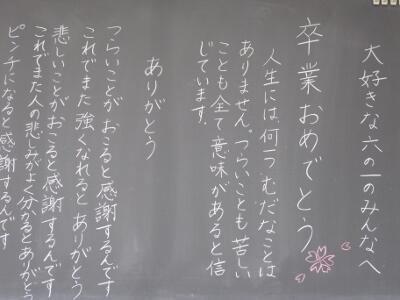 大好きな六の一のみんなへ
卒業おめでとう
人生には、何一つむだなことは
ありません。つらいことも苦しい
ことも全て意味があると信
じています。
ありがとう
つらいことがおこると感謝するんです
これでまた強くなれるとありがとう
悲しいことがおこると感謝するんです
これでまた人の悲しみがよく分かるとありがとう
ピンチになると感謝するんです